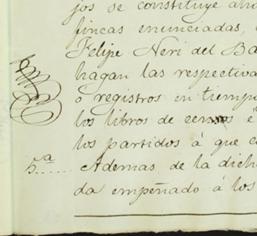 jos se constituye aho
fincas enunciadas,
Felipe Neri del Ba
hagan las respectiva
ó registros en tiempo
los libros de censos é
los partidos á que co
5.ª ..... Ademas de la dich
da empeñado á los